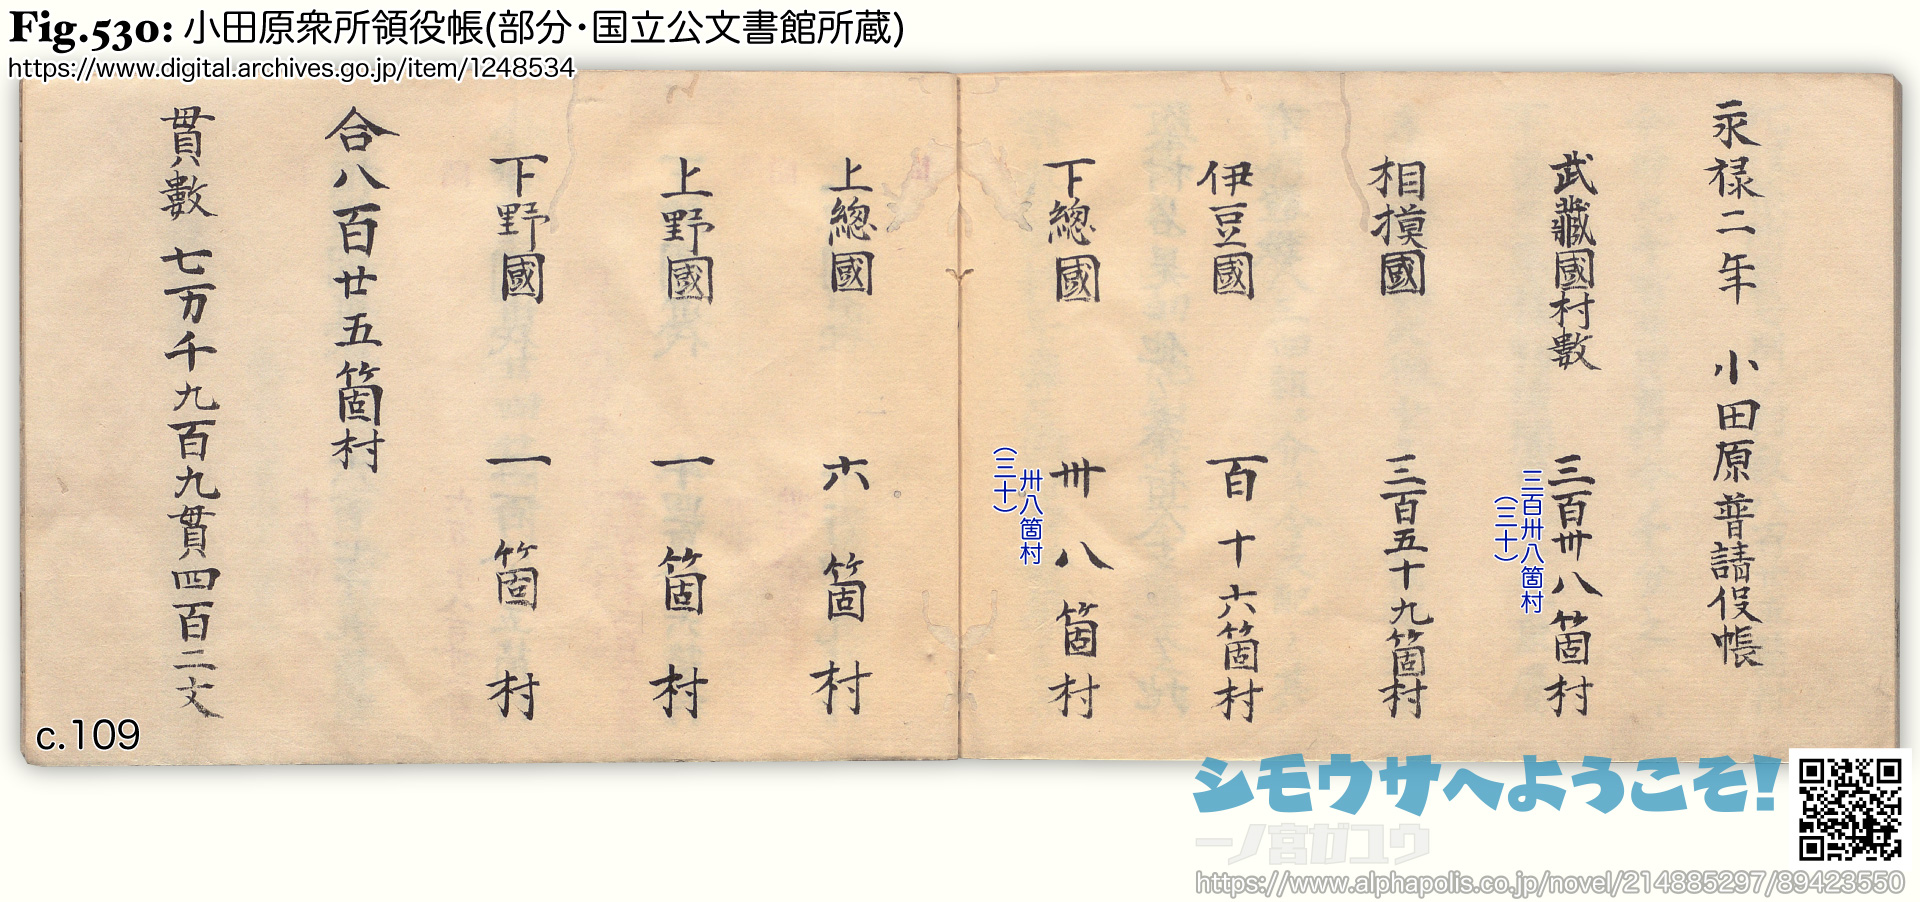 Fig.530: 小田原衆所領役帳(部分･国立公文書館所蔵)
https://www.digital.archives.go.jp/item/1248534
永禄二年 小田原普請役帳
武藏國村數 三百卅八箇村
三百卅八箇村
(三十)
相摸國 三百五十九箇村
伊豆國 百十六箇村
下總國 卅八箇村
卅八箇村
(三十)
上總國 六箇村
上野國 一箇村
下野國 一箇村
合八百廿五箇村
貫數 七万千九百九貫四百二文
c.109
シモウサへようこそ!
一ノ宮ガユウ
https://www.alphapolis.co.jp/novel/214885297/89423550